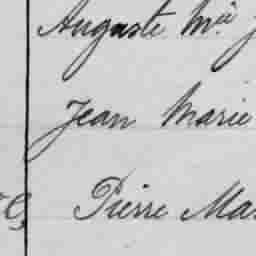 Auguste M.ie
Jean Marie
Pierre Mar